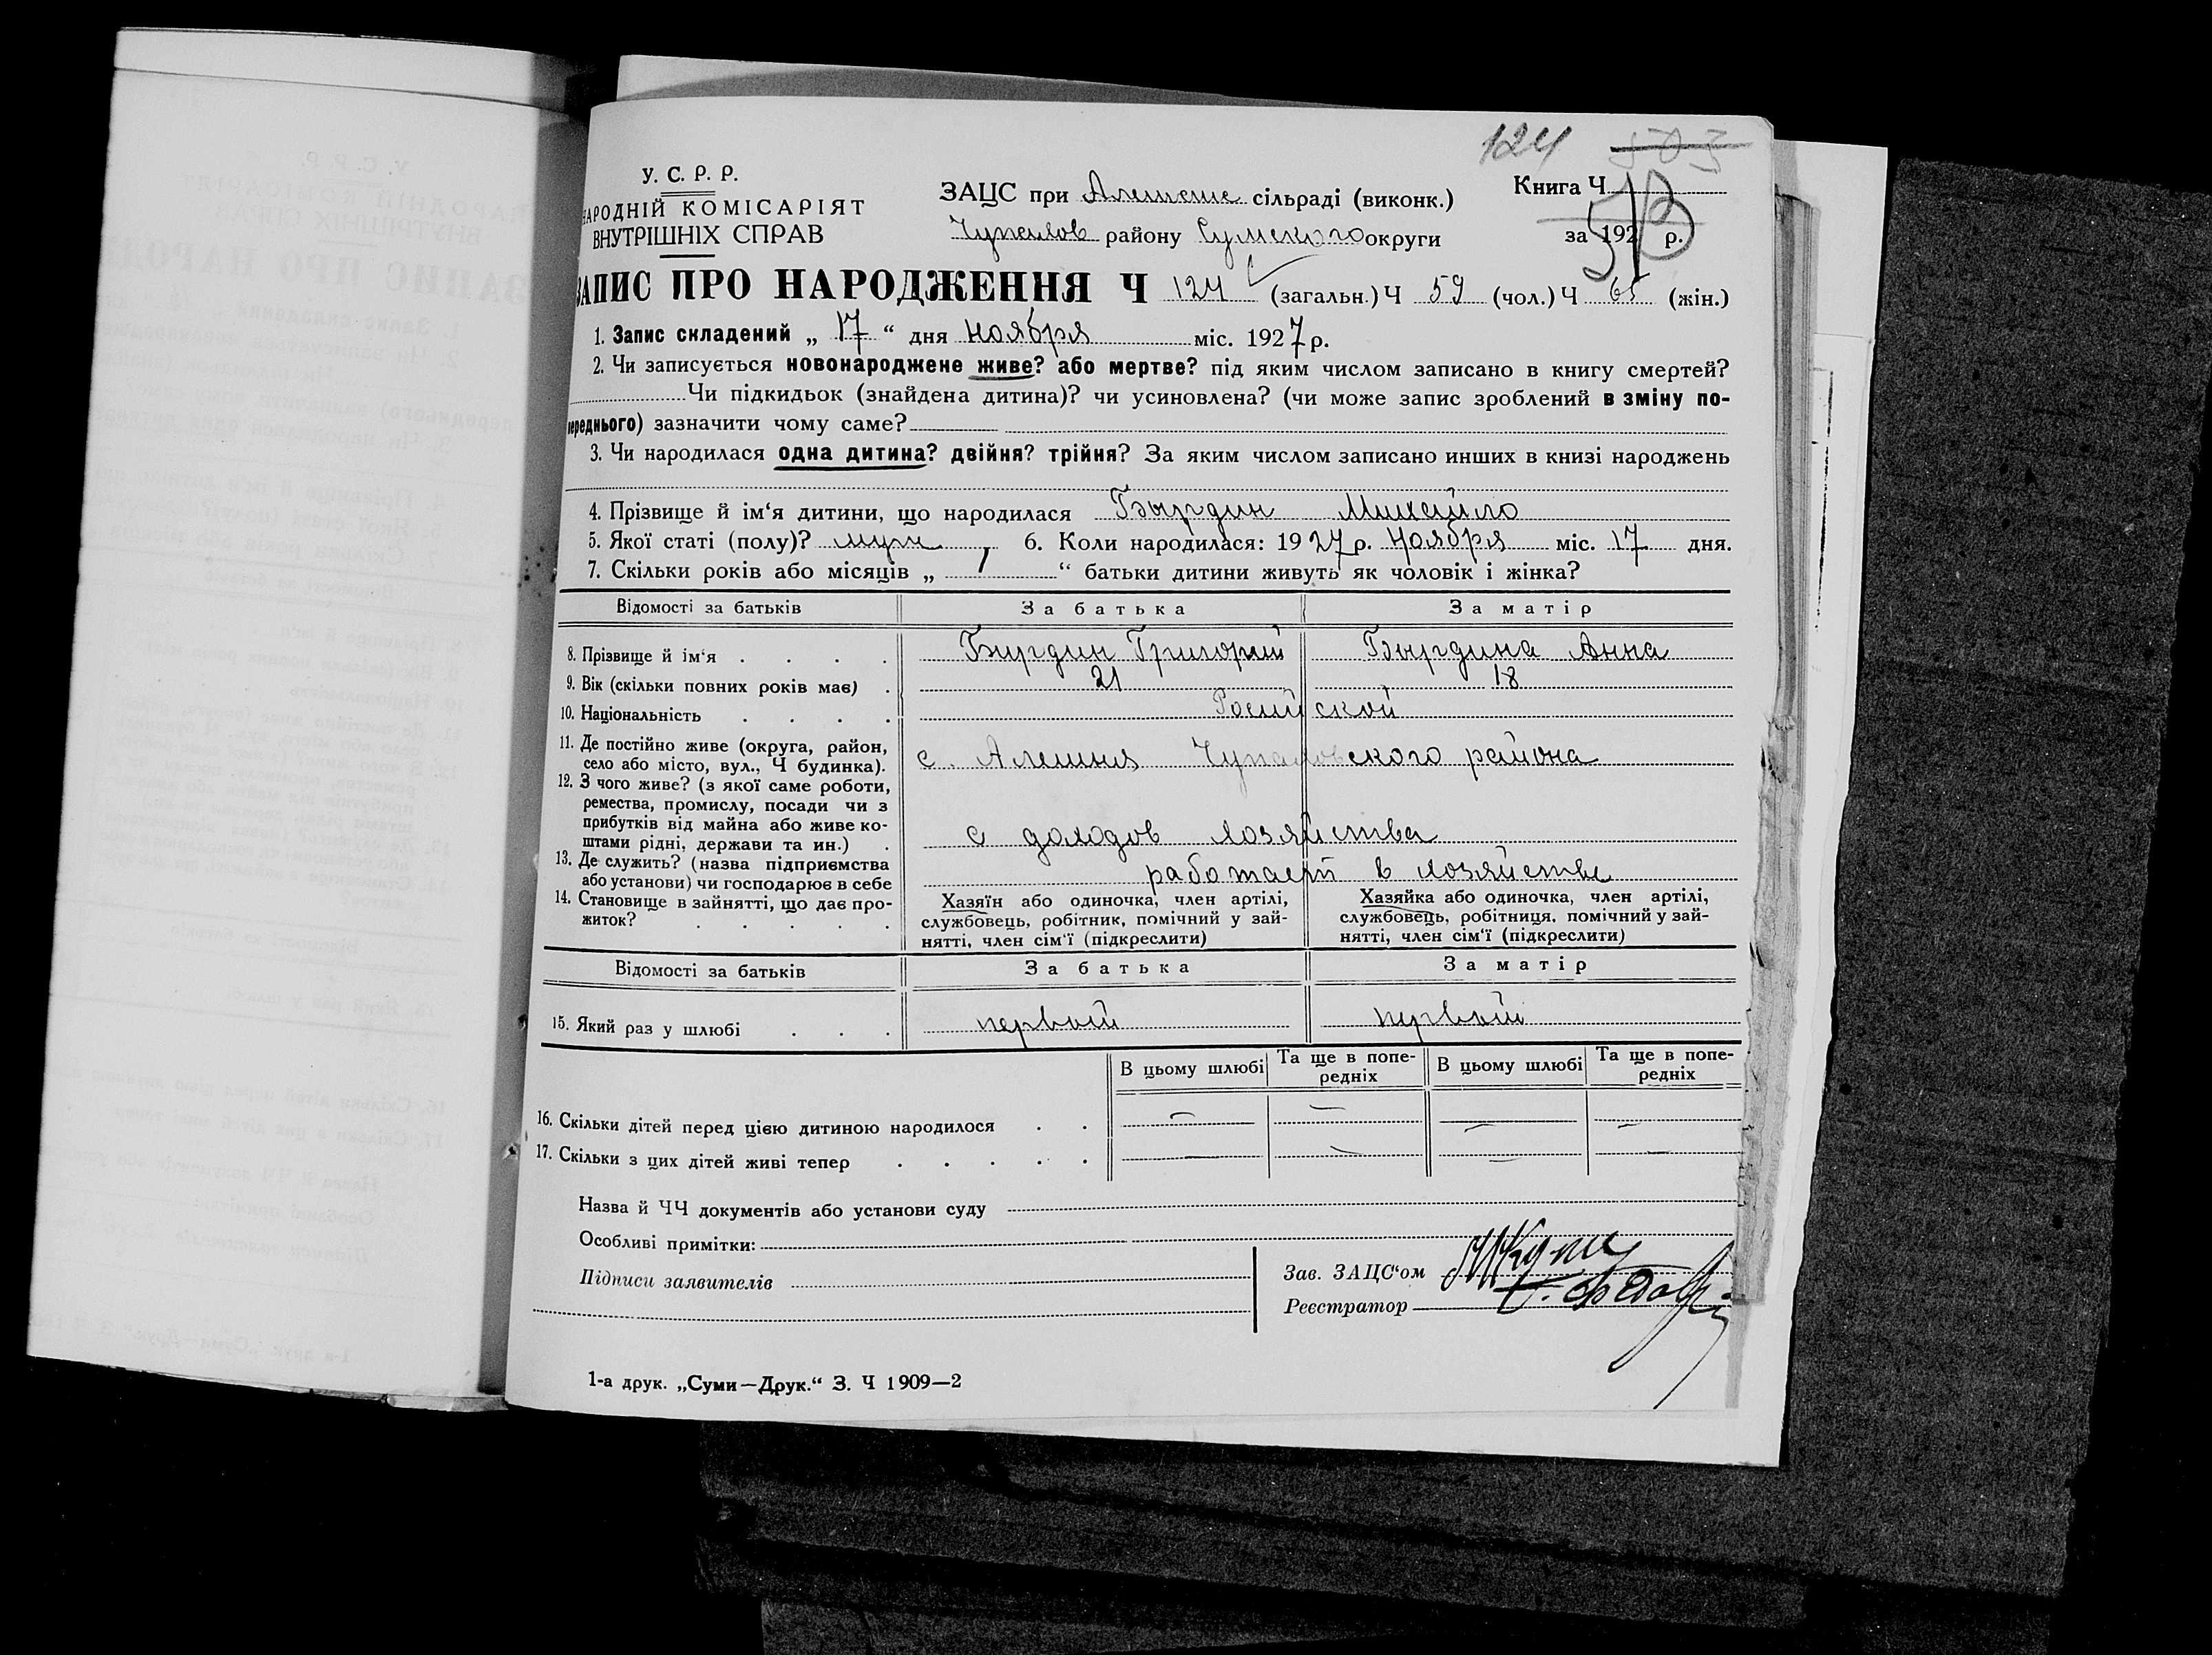 124 503
У. С. Р. Р.
НАРОДНІЙ КОМІСАРІЯТ
ВНУТРІШНІХ СПРАВ
ЗАЦС при сільраді (виконк.)
району Сумского округи
Книга Ч 513
за 192 р.
ЗАПИС ПРО НАРОДЖЕННЯ Ч 124 (загальн.) Ч 59 (чол.) Ч 65 (жін.)
1. Запис складений „ 17 “ дня ноября міс. 1927 р.
2. Чи записується новонароджене живе? або мертве? під яким числом записано в книгу смертей?
Чи підкидьок (знайдена дитина)? чи усиновлена? (чи може запис зроблений в зміну по-
переднього) зазначити чому саме?
3. Чи народилася одна дитина? двійня? трійня? За яким числом записано инших в книзі народжень
4. Прізвище й ім‘я дитини, що народилася Бырдин Михайло
5. Якої статі (полу)? муж 6. Коли народилася: 1927 р. Ноября міс. 17 дня.
7. Скільки років або місяців „ 1 “ батьки дитини живуть як чоловік і жінка?
Відомості за батьків За батька За матір
8. Прізвище й ім‘я . . . . Бирдин Григорий Бырдина Анна
9. Вік (скільки повних років має) . 21 18
10. Національність . . . . Росийской
11. Де постійно живе (округа, район,
село або місто, вул., Ч будинка). с. Алешня Чупаховского района
12. З чого живе? (з якої саме роботи,
ремества, промислу, посади чи з
прибутків від майна або живе ко-
штами рідні, держави та ин.) . с доходов хозяйства
13. Де служить? (назва підприємства
або установи) чи господарює в себе работает в хозяйстве
14. Становище в зайнятті, що дає про-
житок? . . . . .
Хазяїн або одиночка, член артілі,
службовець, робітник, помічний у зай-
нятті, член сім‘ї (підкреслити)
Хазяйка або одиночка, член артілі,
службовець, робітниця, помічний у зай-
нятті, член сім‘ї (підкреслити)
Відомості за батьків За батька За матір
15. Який раз у шлюбі . . . первый первый
В цьому шлюбі Та ще в попе-
редніх В цьому шлюбі Та ще в попе-
редніх
16. Скільки дітей перед цією дитиною народилося . . — — — —
17. Скільки з цих дітей живі тепер . . . . . — — — —
Назва й ЧЧ документів або установи суду
Особливі примітки:
Підписи заявителів
Зав. ЗАЦС‘ом
Реєстратор
1-а друк. „Суми—Друк.“ З. Ч 1909—2